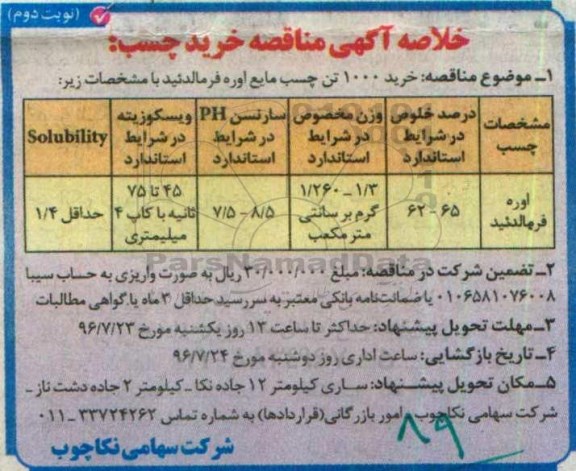 (نوبت دوم)
خلاصه آگهی مناقصه خرید چسب:
۱ـ موضوع مناقصه: خرید ۱۰۰۰ تن چسب مایع اوره فرمالدئید با مشخصات زیر:
مشخصات چسب
درصد خلوص در شرایط استاندارد
وزن مخصوص در شرایط استاندارد
PH سارتسن در شرایط استاندارد
ویسکوزیته در شرایط استاندارد
Solubility
اوره فرمالدئید
۶۲ - ۶۵
۱/۲۶۰ ـ ۱/۳ گرم بر سانتی متر مکعب
۷/۵ - ۸/۵
۴۵ تا ۷۵ ثانیه با کاپ ۴ میلیمتری
حداقل ۱/۴
ParsNamadData
۲ـ تضمین شرکت در مناقصه: مبلغ ۳۰/۰۰۰/۰۰۰ ریال به صورت واریزی به حساب سیبا
۰۱۰۶۵۸۱۰۷۶۰۰۸ یا ضمانت‌نامه بانکی معتبر به سررسید حداقل ۳ ماه یا گواهی مطالبات
۳ـ مهلت تحویل پیشنهاد: حداکثر تا ساعت ۱۳ روز یکشنبه مورخ ۹۶/۷/۲۳
۴ـ تاریخ بازگشایی: ساعت اداری روز دوشنبه مورخ ۹۶/۷/۲۴
۵ـ مکان تحویل پیشنهاد: ساری کیلومتر ۱۲ جاده نکا ـ کیلومتر ۲ جاده دشت ناز ـ
شرکت سهامی نکاچوب، امور بازرگانی (قراردادها) به شماره تماس ۳۳۷۲۴۲۶۲ ـ ۰۱۱
۸۹
شرکت سهامی نکاچوب